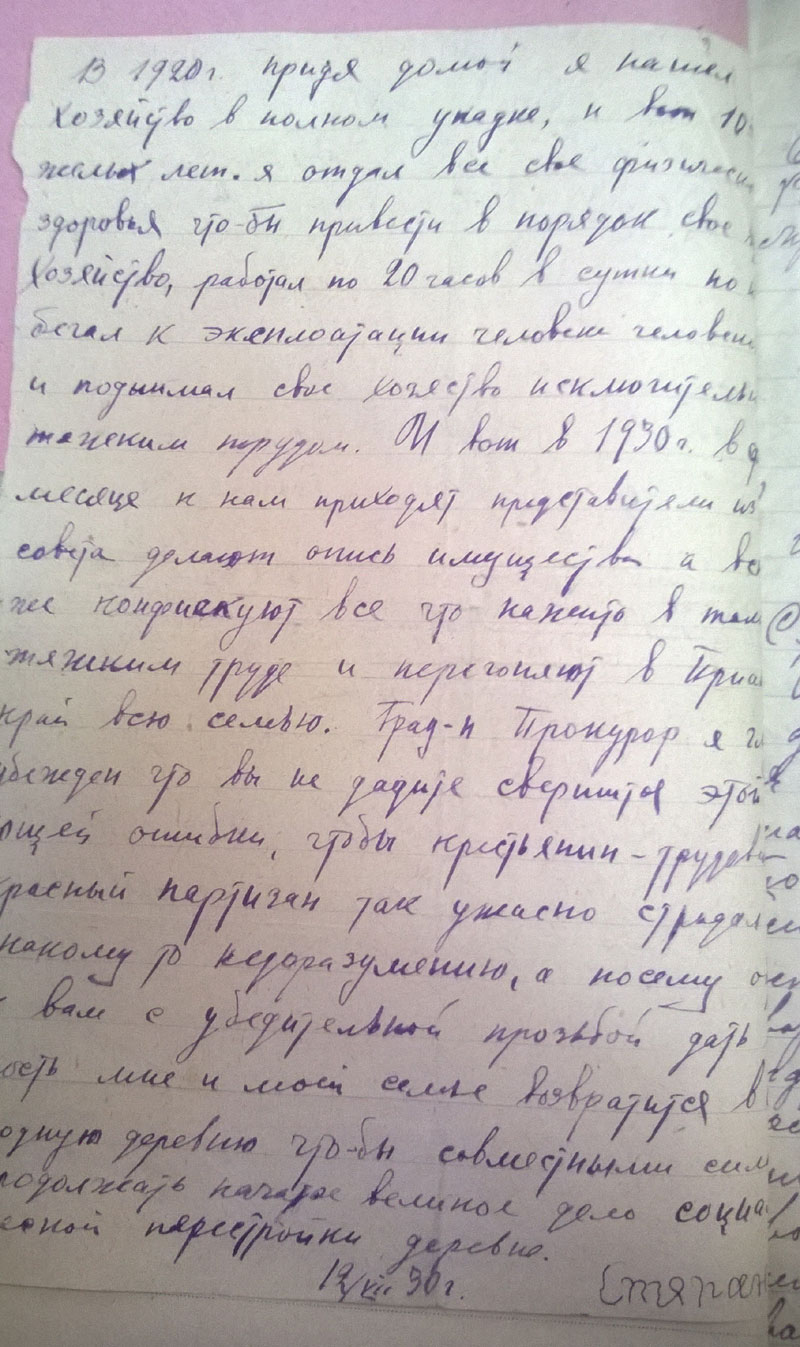 В 1920г. придя домой я нашел
хозяйство в полном упадке, и вот 10
желых лет. я отдал все свое физически
здоровья что-бы привести в порядок свое
хозяйство, работал по 20 часов в сутки но
бегал к эксплоатации человека человеко
и подымал свое хозяство исключительн
тяжеким трудом. И вот в 1930г. в д
месяце к нам приходят представители из
совета делают опись имущества а во
же конфискуют все что нажито в там
тяжским труде и перегоняют в При
край всю семью. Град-н Прокурор я г
убежден что вы не дадите свершится этой
ящей ошибки, чтобы крестьянин-трудови
красный партизан так ужасно страдал
накому то недоразумению, а посему о
вам с убедительной прозьбой дать
ость мне и моей семье возвратится в
одную деревню что-бы совместными сил
родолжать начатое великое дело социа
еской перестройки деревне.
12/VIII 30г. Степан